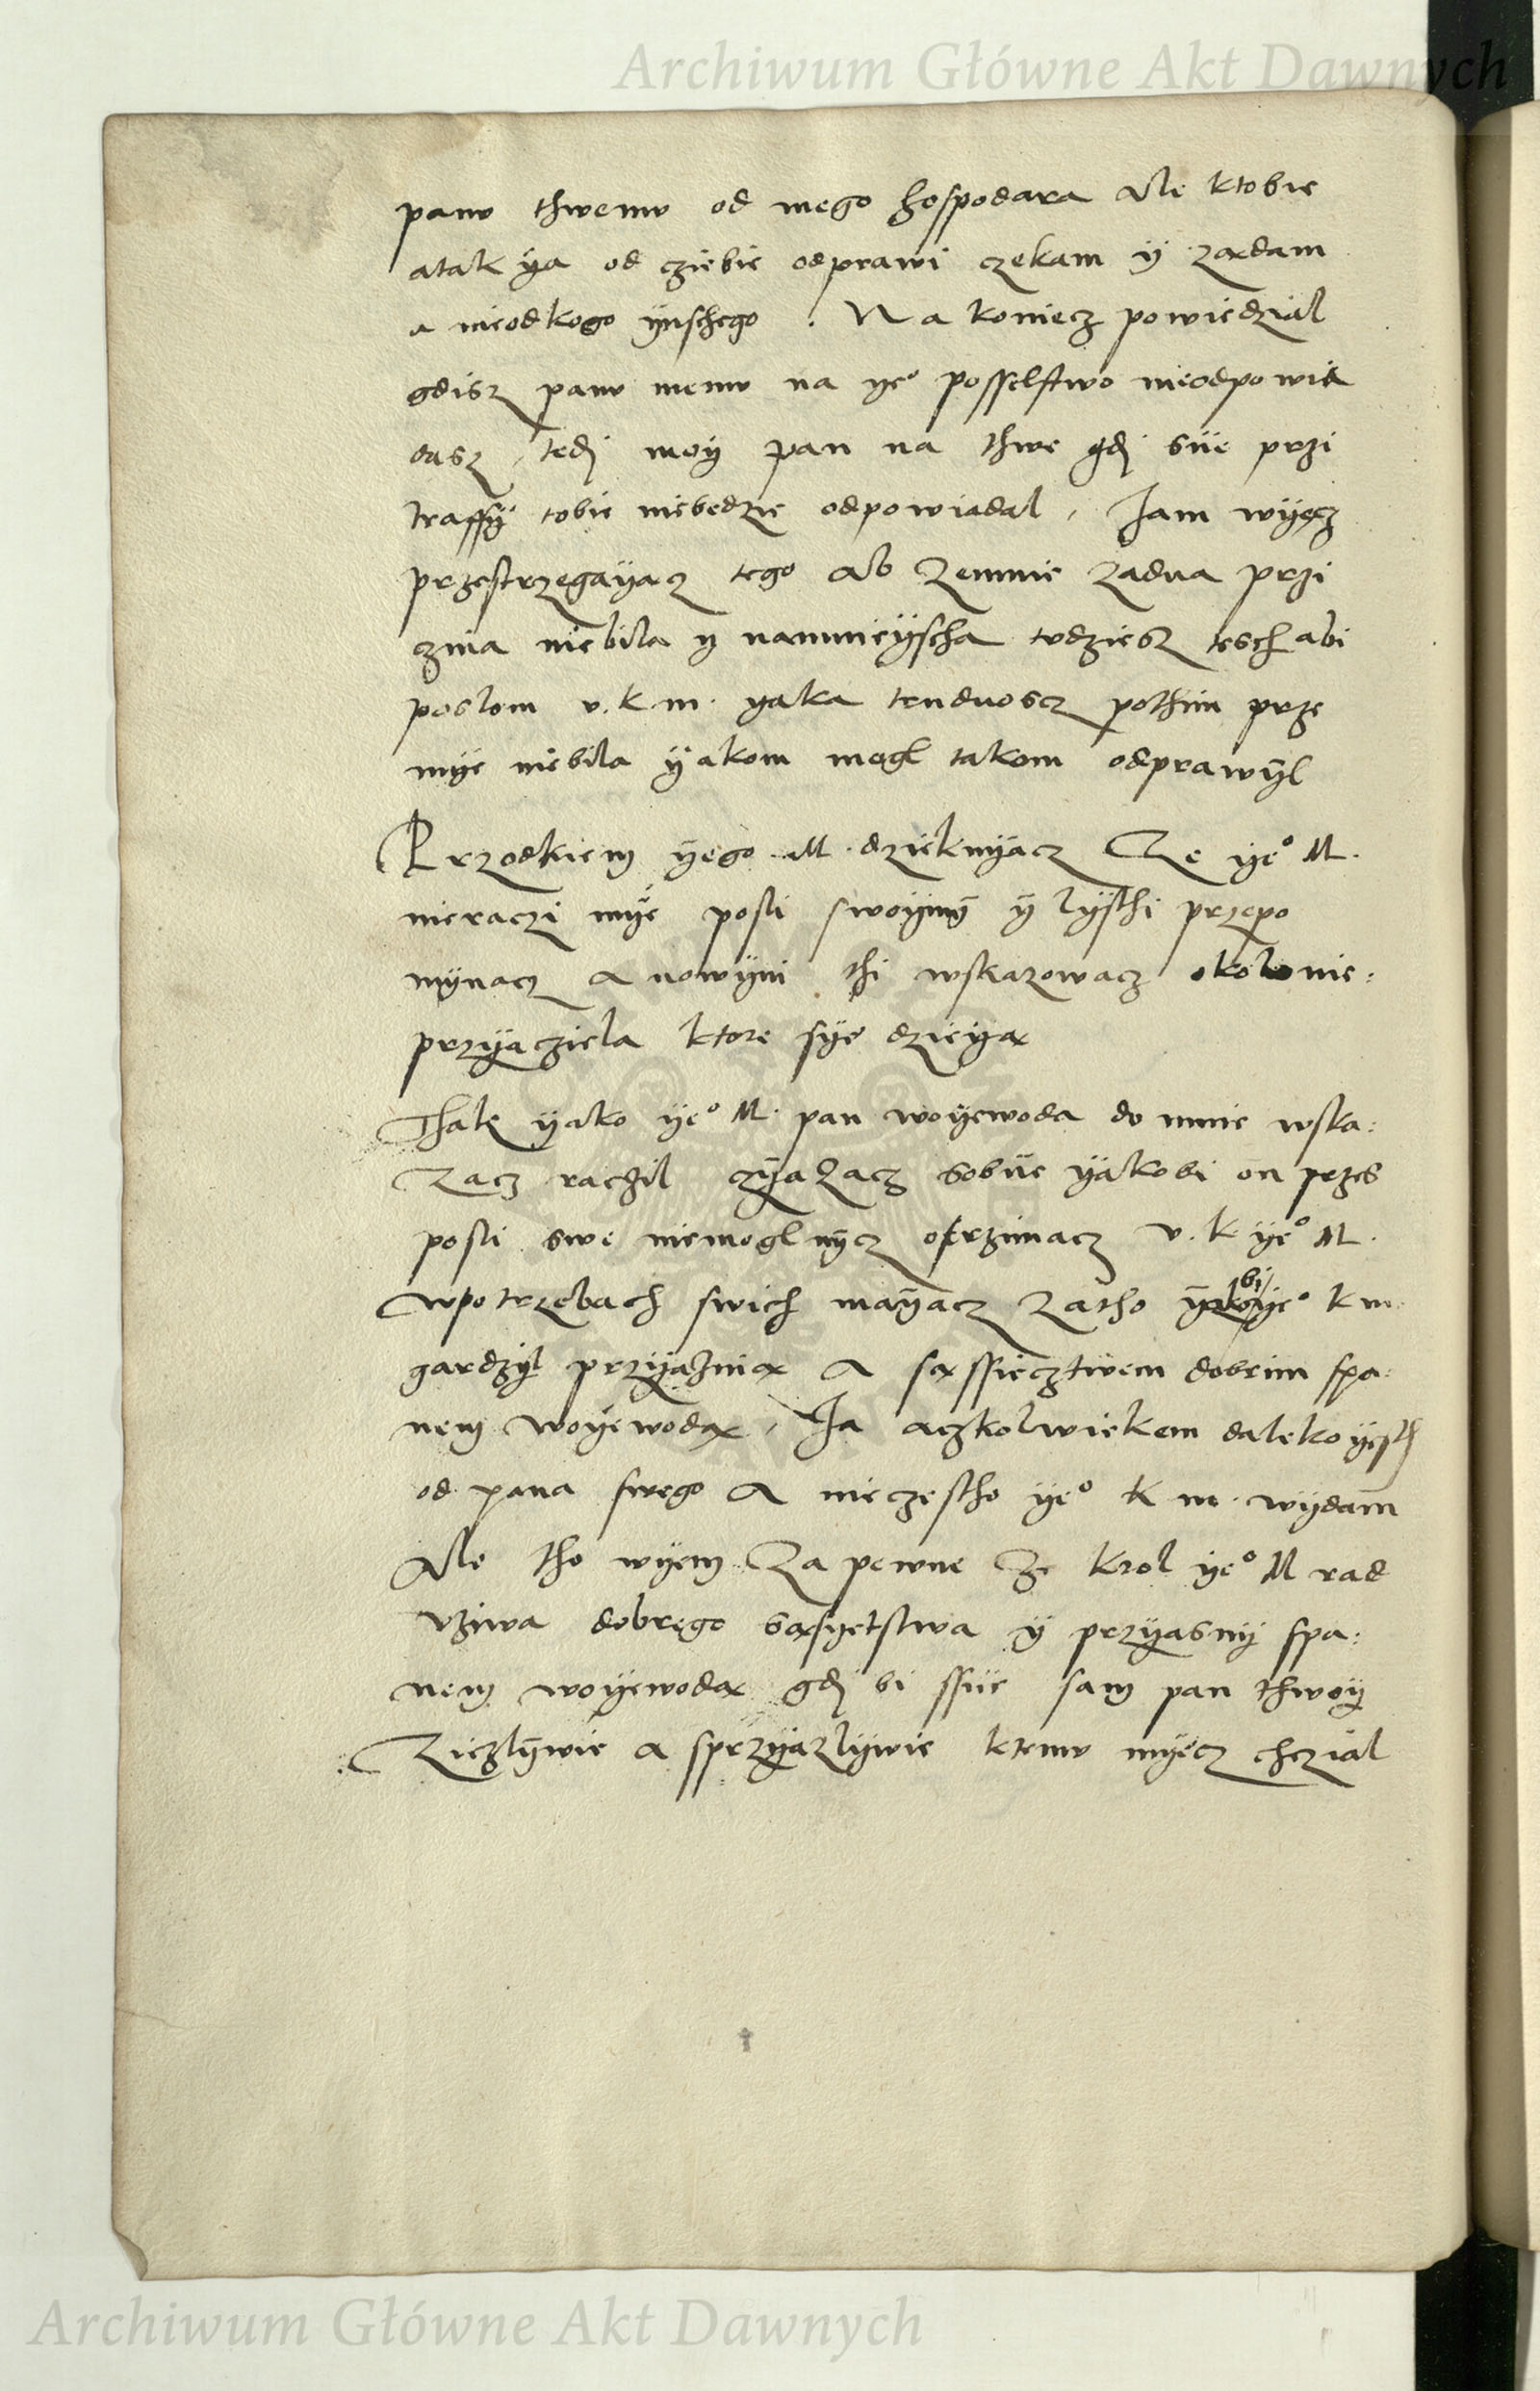 Archiwum Główne Akt Dawnych
panv thwemv od mego hospodara Ale ktobie
atak ya od cziebie odprawi czekam ÿ zaxdam
a nieodkogo ÿnschego . Na koniecz powiedzial
gdisz panv memv na ye° posselstwo nieodpowia
dasz, tedj moÿ pan na thwe gdj siie przi
traffÿ tobie niebedzie odpowiadal, Jam wÿecz
przestrzegaÿacz tego Ab zemnie zadna przi
czina niebila y namnieÿscha tvdziesz tesch abi
poslom v. k m. yaka trudnoscz pothim prze
mÿe niebila ÿakom mogl takom odprawÿl
Przodkiem ÿego M. dziekuyacz Ze ÿe° M.
nieraczi mÿe posli swoÿmÿ ÿ lÿsthi przepo
mÿnacz A nowÿni thi wskazowacz okolo nie:
przÿaciela ktore sÿe dzieÿax
Thak ÿako ÿe° M. pan woÿewoda do mnie wska:
zacz raczil czÿazacz sobiie ÿakobi on przes
posli swe niemogl nÿcz otrzimacz v. k ÿe° M.
wpotrzebach swich maÿacz zatho ÿakobi ÿe° k m
gardzÿl przÿaznia A saxssiecztwem dobrim spa:
nem woÿewodax, Ja aczkolwiekem daleko ÿesth
od pana swego A nieczestho ÿe° K m. wÿdam
Ale tho wÿem Za pewne Ze krol ÿe° M rad
vziwa dobrego saxsÿetstwa ÿ przÿasnÿ spa:
nem woÿewodax gdj bi ssiie sam pan thwoÿ
Ziczlÿwie a sprzÿazlÿwie ktemv mÿecz chczial
Archiwum Główne Akt Dawnych